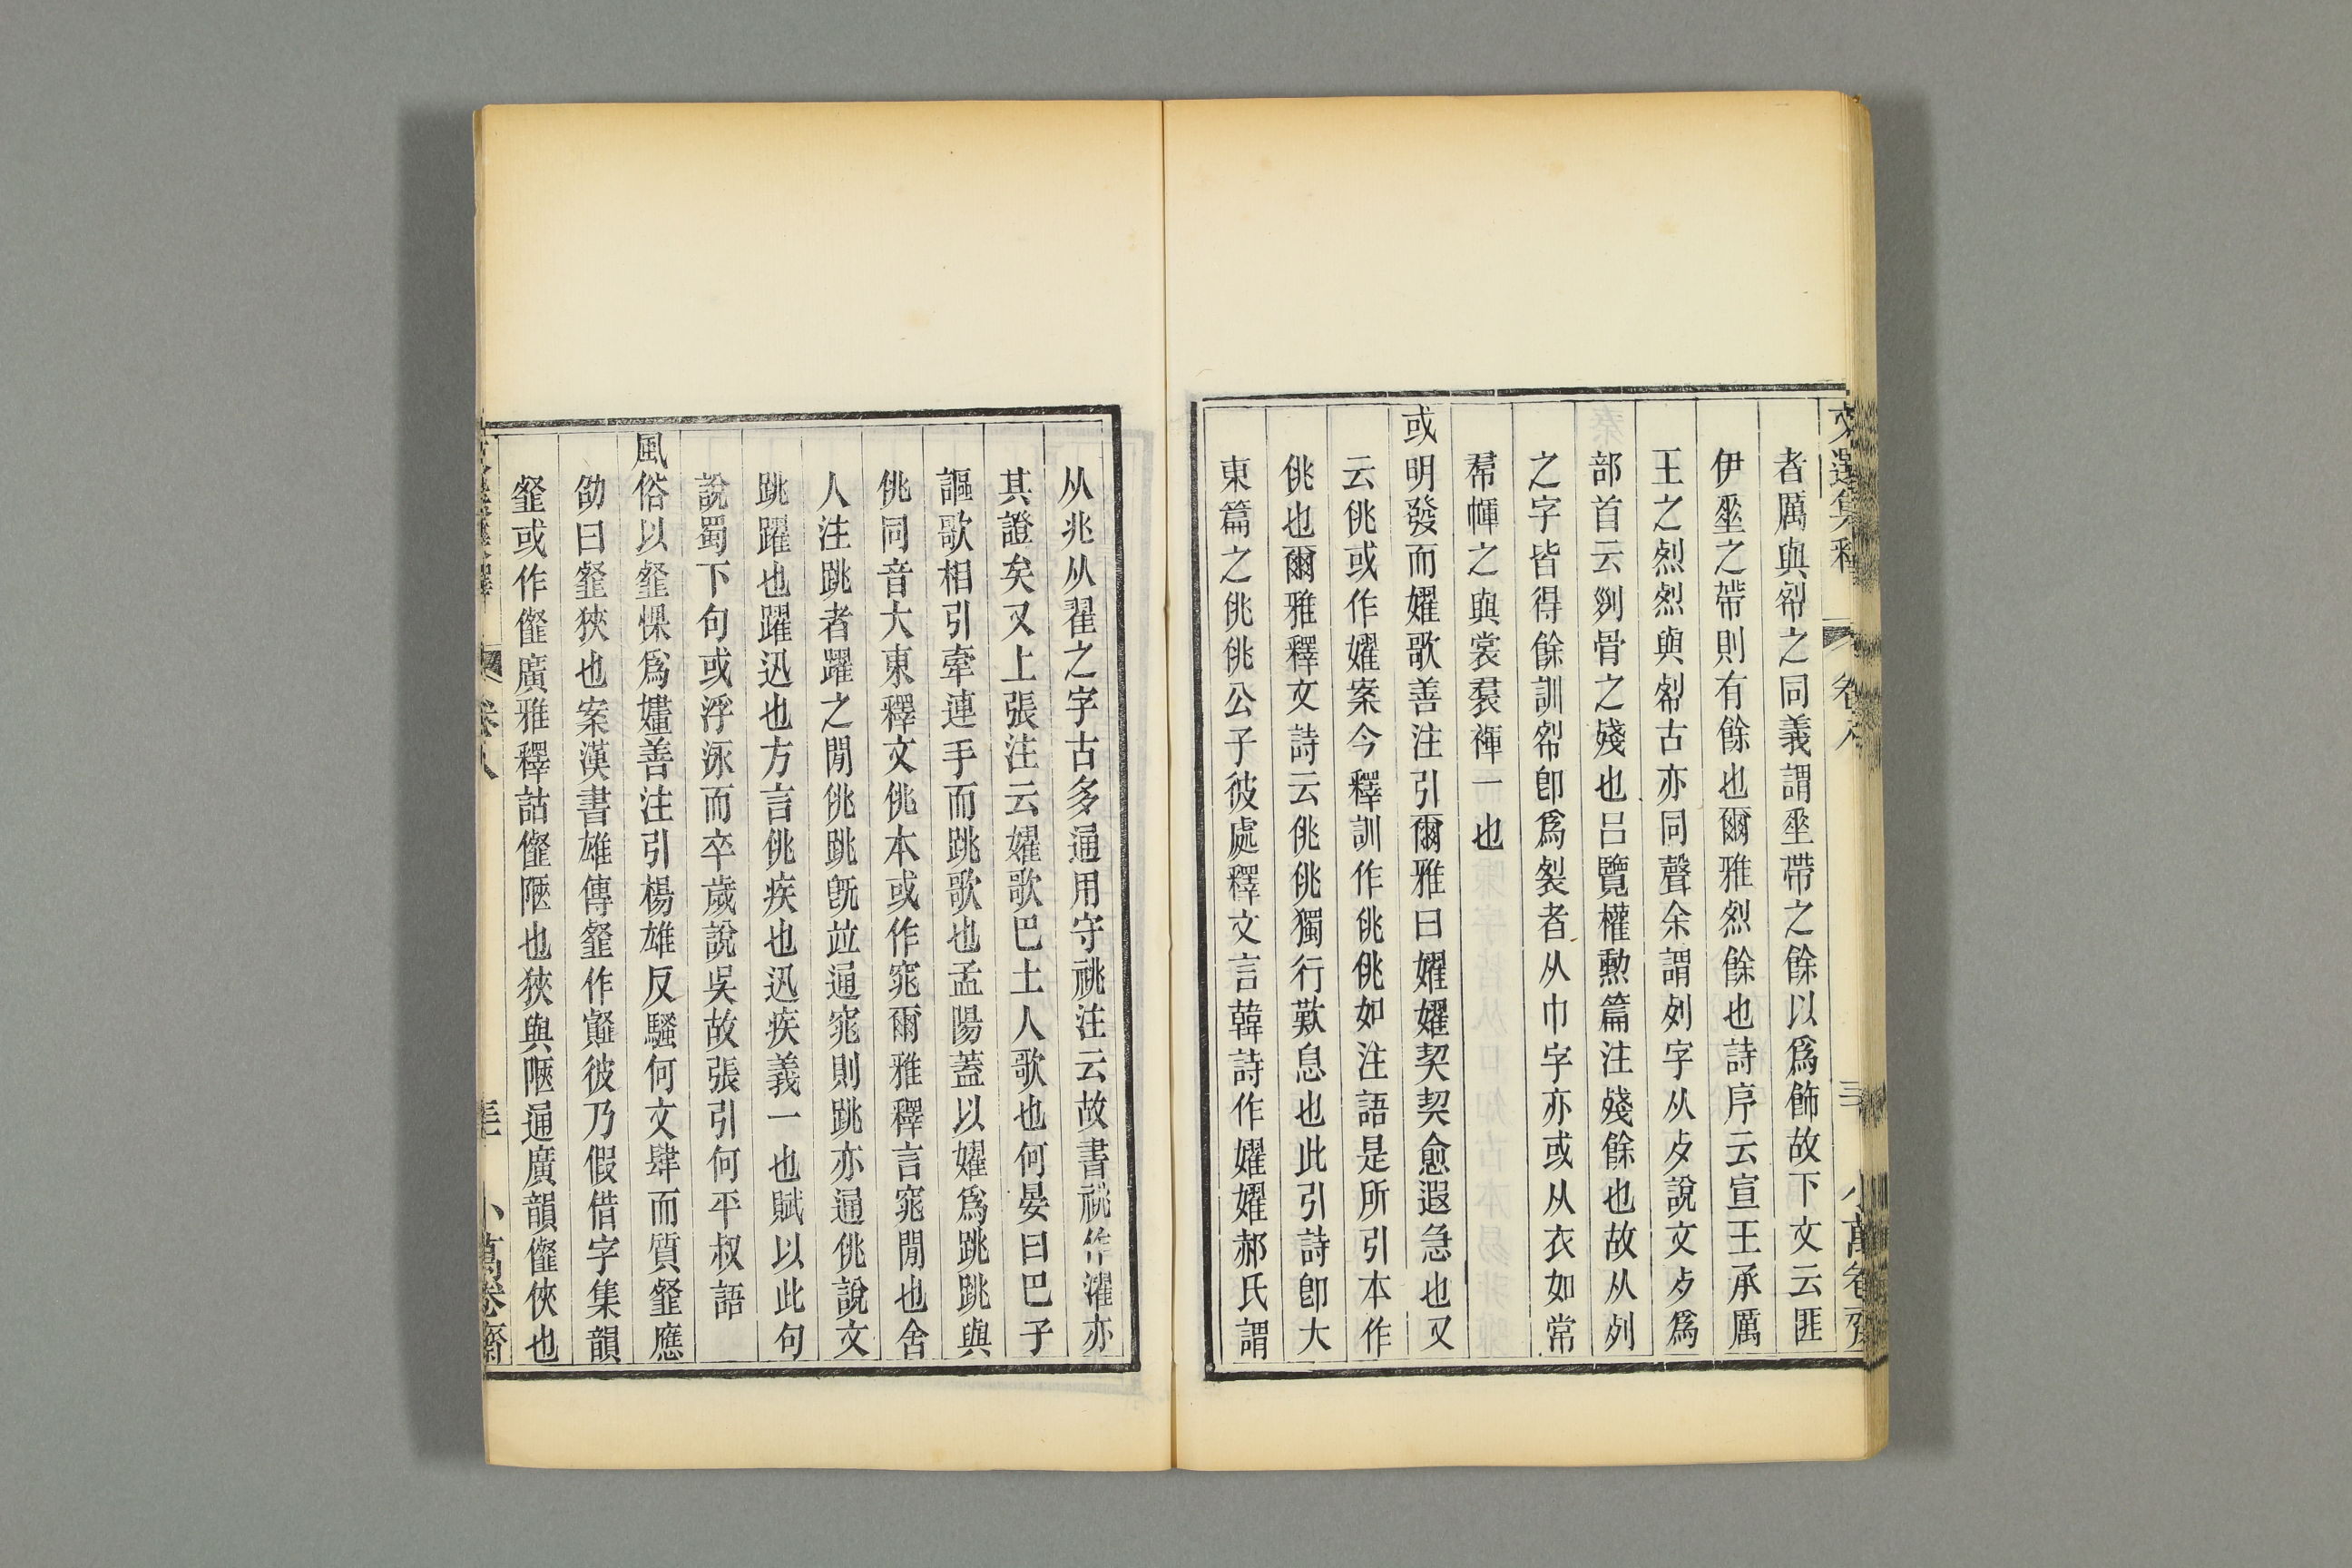 者厲與㡜之同義謂垂帶之餘以爲飾故下文云匪
伊垂之帶則有餘也爾雅烈餘也詩序云宣王承厲
王之烈烈與㡜古亦同聲余謂列字从歺說文歺爲
部首云剡骨之殘也呂覽權勳篇注殘餘也故从列
之字皆得餘訓㡜卽爲裂者从巾字亦或从衣如常
帬㡓之與裳裠褌一也
或明發而嬥歌善注引爾雅曰嬥嬥契契愈遐急也又
云佻或作嬥案今釋訓作佻佻如注語是所引本作
佻也爾雅釋文詩云佻佻獨行歎息也此引詩卽大
東篇之佻佻公子彼處釋文言韓詩作嬥嬥郝氏謂
从兆从翟之字古多通用守祧注云故書祧作濯亦
其證矣又上張注云嬥歌巴土人歌也何晏曰巴子
謳歌相引牽連手而跳歌也孟陽蓋以嬥爲跳跳與
佻同音大東釋文佻本或作窕爾雅釋言窕閒也舍
人注跳者躍之閒佻跳旣竝通窕則跳亦通佻說文
跳躍也躍迅也方言佻疾也迅疾義一也賦以此句
說蜀下句或浮泳而卒歲說吳故張引何平叔語
風俗以韰惈爲嫿善注引楊雄反騷何文肆而質韰應
劭曰韰狹也案漢書雄傳韰作𩐋彼乃假借字集韻
韰或作㒠廣雅釋詁㒠陿也狹與陿通廣韻㒠俠也
文選集釋
小萬卷齋
卷八
小萬卷齋